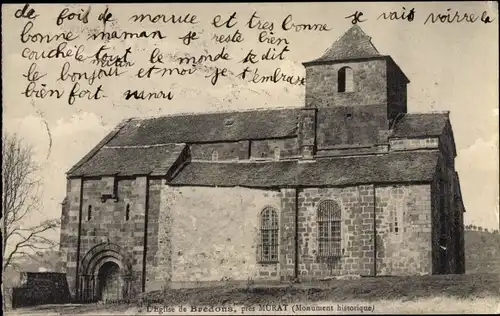 de fois de morue et tres bonne je vais voir le
bonne maman je reste bien
couché tout le monde te dit
le bonjour et moi je
t'embrasse
bien fort. nanri
L'Église de Bredons, près MURAT (Monument historique)